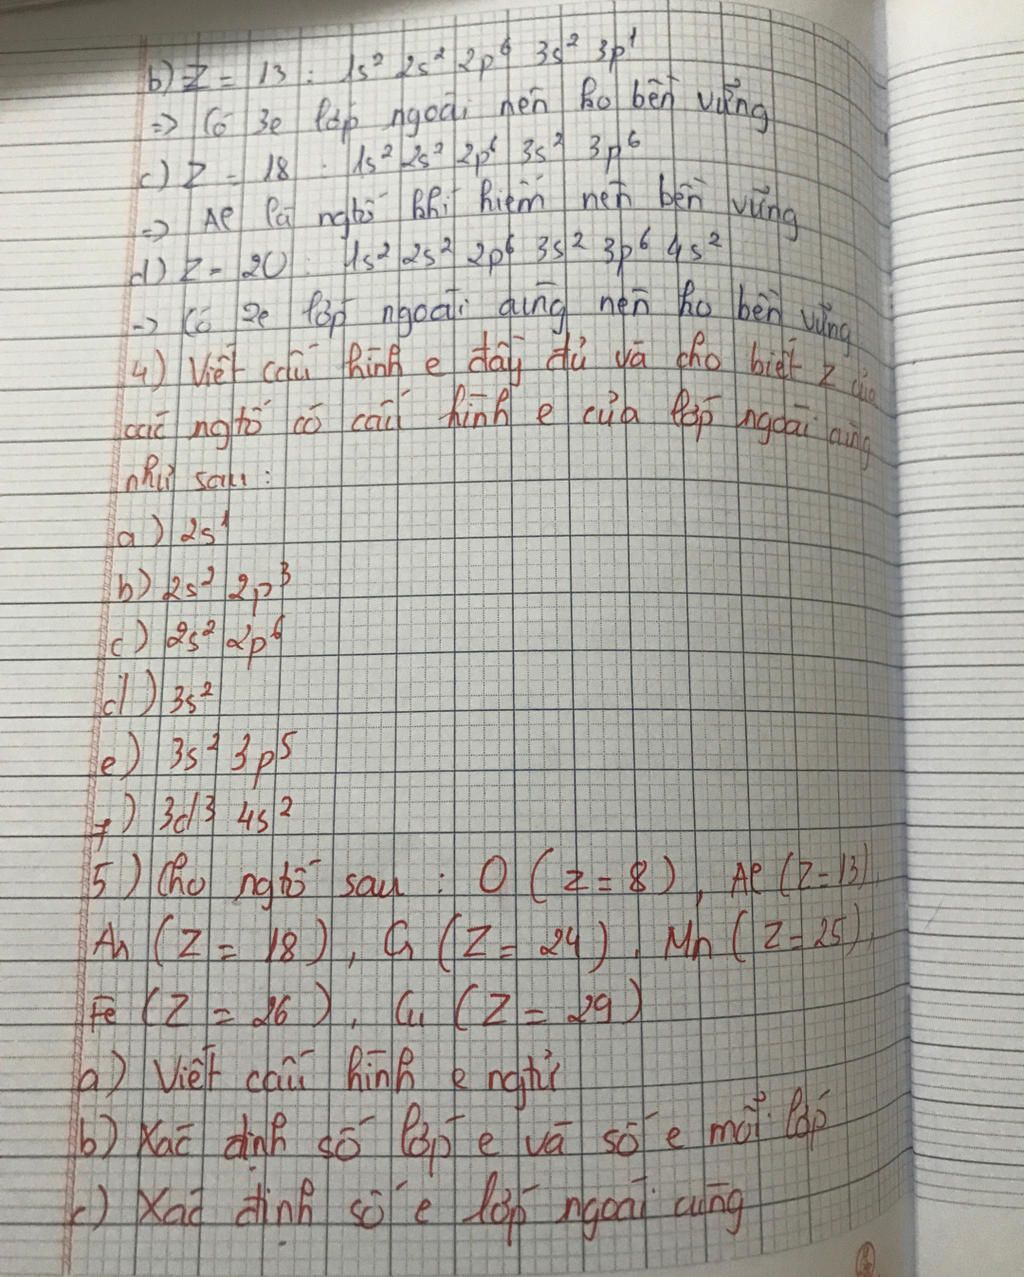 b) Z = 13 : 1s² 2s² 2p⁶ 3s² 3p¹
=> Có 3e lớp ngoài nên ko bền vững
c) Z = 18 : 1s² 2s² 2p⁶ 3s² 3p⁶
=> Al là ngtố khí hiếm nên bền vững
d) Z = 20 : 1s² 2s² 2p⁶ 3s² 3p⁶ 4s²
-> Có 2e lớp ngoài cùng nên ko bền vững
4) Viết cấu hình e đầy đủ và cho biết Z của
các ngtố có cấu hình e của lớp ngoài cùng
như sau :
a) 2s¹
b) 2s² 2p³
c) 2s² 2p⁶
d) 3s²
e) 3s² 3p⁵
f) 3d³ 4s²
5) Cho ngtố sau : O (Z = 8), Al (Z = 13),
Ar (Z = 18), Cr (Z = 24), Mn (Z = 25),
Fe (Z = 26), Cu (Z = 29)
a) Viết cấu hình e ngtử
b) Xác định số lớp e và số e mỗi lớp
c) Xác định số e lớp ngoài cùng